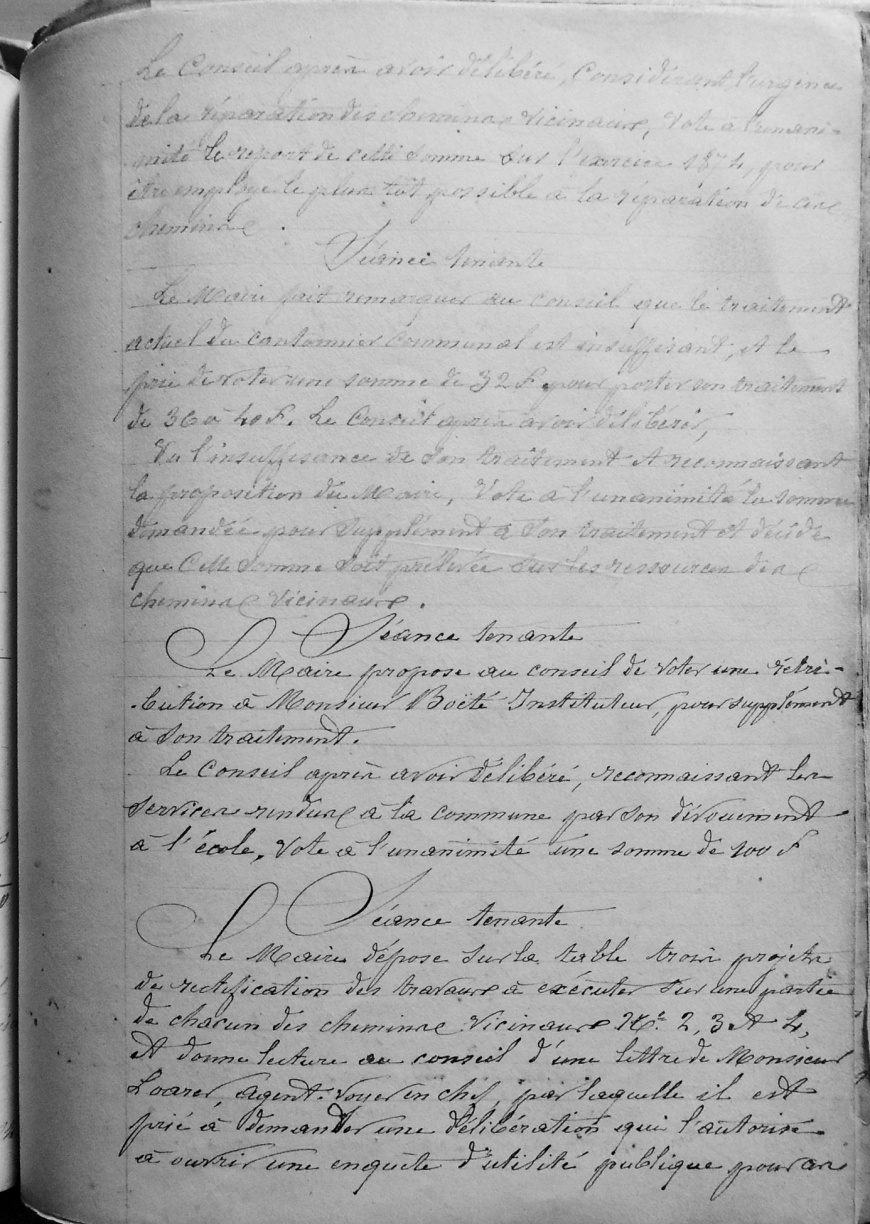 Le Conseil après avoir délibéré, Considérant l'urgence
de la réparation des chemins vicinaux, Vote à l'unani-
mité le report de cette somme sur l'exercice 1874, pour
être employé le plus tôt possible à la réparation de ces
chemins.
Séance tenante
Le Maire fait remarquer au conseil que le traitement
actuel du cantonnier communal est insuffisant, et le
prie de voter une somme de 32 F pour porter son traitement
de 36 à 40 F. Le Conseil après avoir délibéré,
Vu l'insuffisance de son traitement et reconnaissant
la proposition du Maire, Vote à l'unanimité la somme
demandée pour supplément à son traitement et décide
que cette somme soit prélevée sur les ressources des
chemins vicinaux.
Séance tenante
Le Maire propose au conseil de voter une rétri-
bution à Monsieur Boëté Instituteur, pour supplément
à son traitement.
Le Conseil après avoir délibéré, reconnaissant les
services rendus à la commune par son dévouement
à l'école, Vote à l'unanimité une somme de 100 F
Séance tenante
Le Maire dépose sur la table trois projets
de rectification des travaux à exécuter sur une partie
de chacun des chemins vicinaux Nos 2, 3 et 4,
et donne lecture au conseil d'une lettre de Monsieur
Loarer, agent-voyer en chef, par laquelle il est
prié à demander une délibération qui l'autorise
à ouvrir une enquête d'utilité publique pour ces